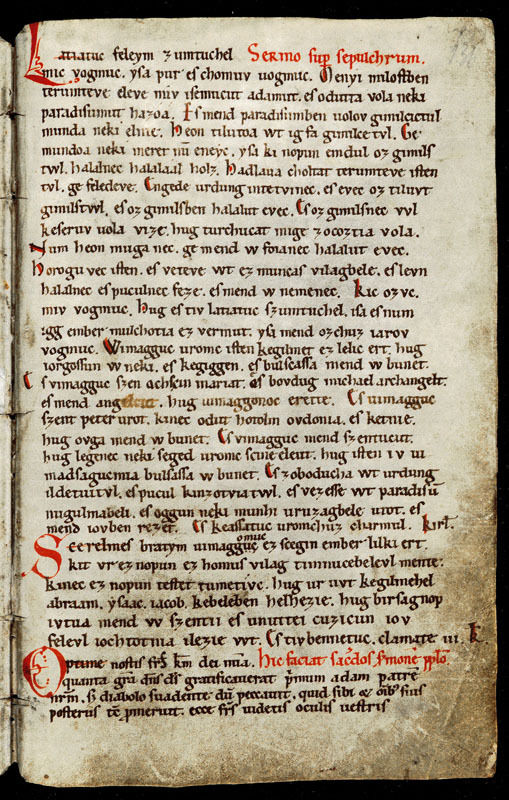 Latiatuc feleym zumtuchel Sermo sup sepulchrum.
mic vogmuc. ysa pur es chomuv uogmuc. Menyi milostben
terumteve eleve miv isemucut adamut. es odutta vola neki
paradisumut hazoa. Es mend paradisumben uolov gimilcictul
munda neki elnie. Heon tilutoa wt ig fa gimilce tvl. Ge
mundoa neki meret nū eneyc. ysa ki nopun emdul oz gimils
twl. halalnec halalaal holz. Hadlaua choltat terumteve isten
tvl. ge feledeve. Engede urdung intetvinec. es evec oz tiluvt
gimilstwl. es oz gimilsben halalut evec. Es oz gimilsnec vvl
keseruv uola vize. hug turchucat mige zocoztia vola.
Num heon muga nec. ge mend w foianec halalut evec.
Horogu vec isten. es veteve wt ez muncas vilagbele. es levn
halalnec es puculnec feze. es mend w nemenec. Kic ozvc.
miv vogmuc. Hug es tiv latiatuc szumtuchel. isa es num
igg ember mulchotia ez vermut. ysa mend ozchuz iarov
vogmuc. Wimagguc uromc isten kegilmet ez lelic ert. hug
iorgossun w neki. es kegiggen. es bulsassa mend w bunet.
Es vimagguc szen achscin mariat. es bovdug michael archangelt.
es mend angelcut. hug uimaggonoc erette. Es uimagguc
szent peter urot. kinec odut hotolm ovdonia. es ketnie.
hug ovga mend w bunet. Es vimagguc mend szentucut.
hug legenec neki seged uromc scine eleut. hug isten iv ui
madsagucmia bulsassa w bunet. Es zoboducha wt urdung
ildetuitvl. es pucul kinzotviatwl. es vezesse wt paradisū
nugulmabeli. es oggun neki munhi uruzagbele utot. es
mend iovben rezet. Es keassatuc uromchuz charmul. Kirl.
Scerelmes bratym uimagguc omuc ez scegin ember lilki ert.
kit vr ez nopun ez homus vilag timnucebelevl mente.
kinec ez nopun testet tumetivc. hug ur uvt kegilmehel
abraam. ysaac. iacob. kebeleben helhezie. hug birsagnop
ivtua mend w szentii es unuttei cuzicun iov
felevl iochtotnia ilezie wt. Es tivbennetuc. clamate iii. K.
Optime nostis frs km dei mia. Hic faciat sacdos smonē pplo.
quanta grā dns ds gratificaverat primum adam patrē
nrm. s diabolo suadente dū peccavit. quid sibi et omib suis
posteris ecce frs videtis oculis vestris